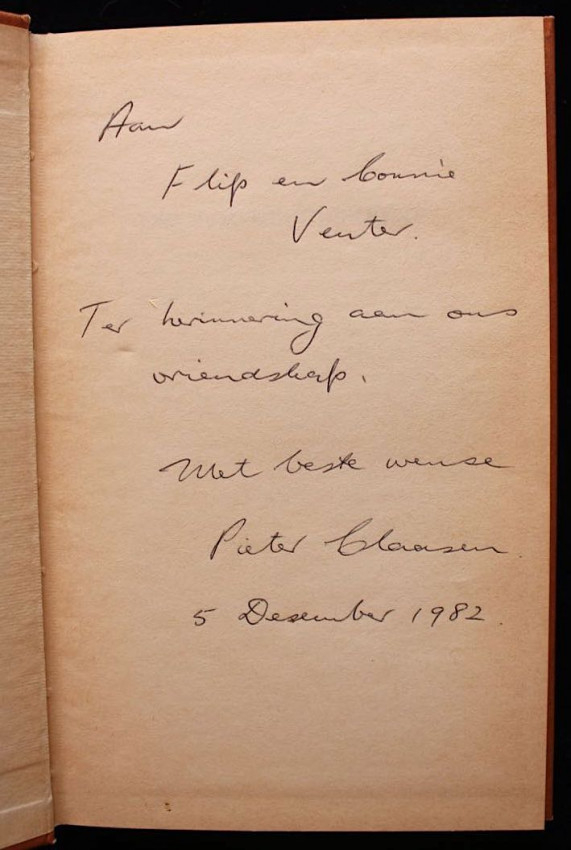 Aan
Flip en Connie
Venter.
Ter herinnering aan ons
vriendskap.
Met beste wense
Pieter Claasen.
5 Desember 1982.